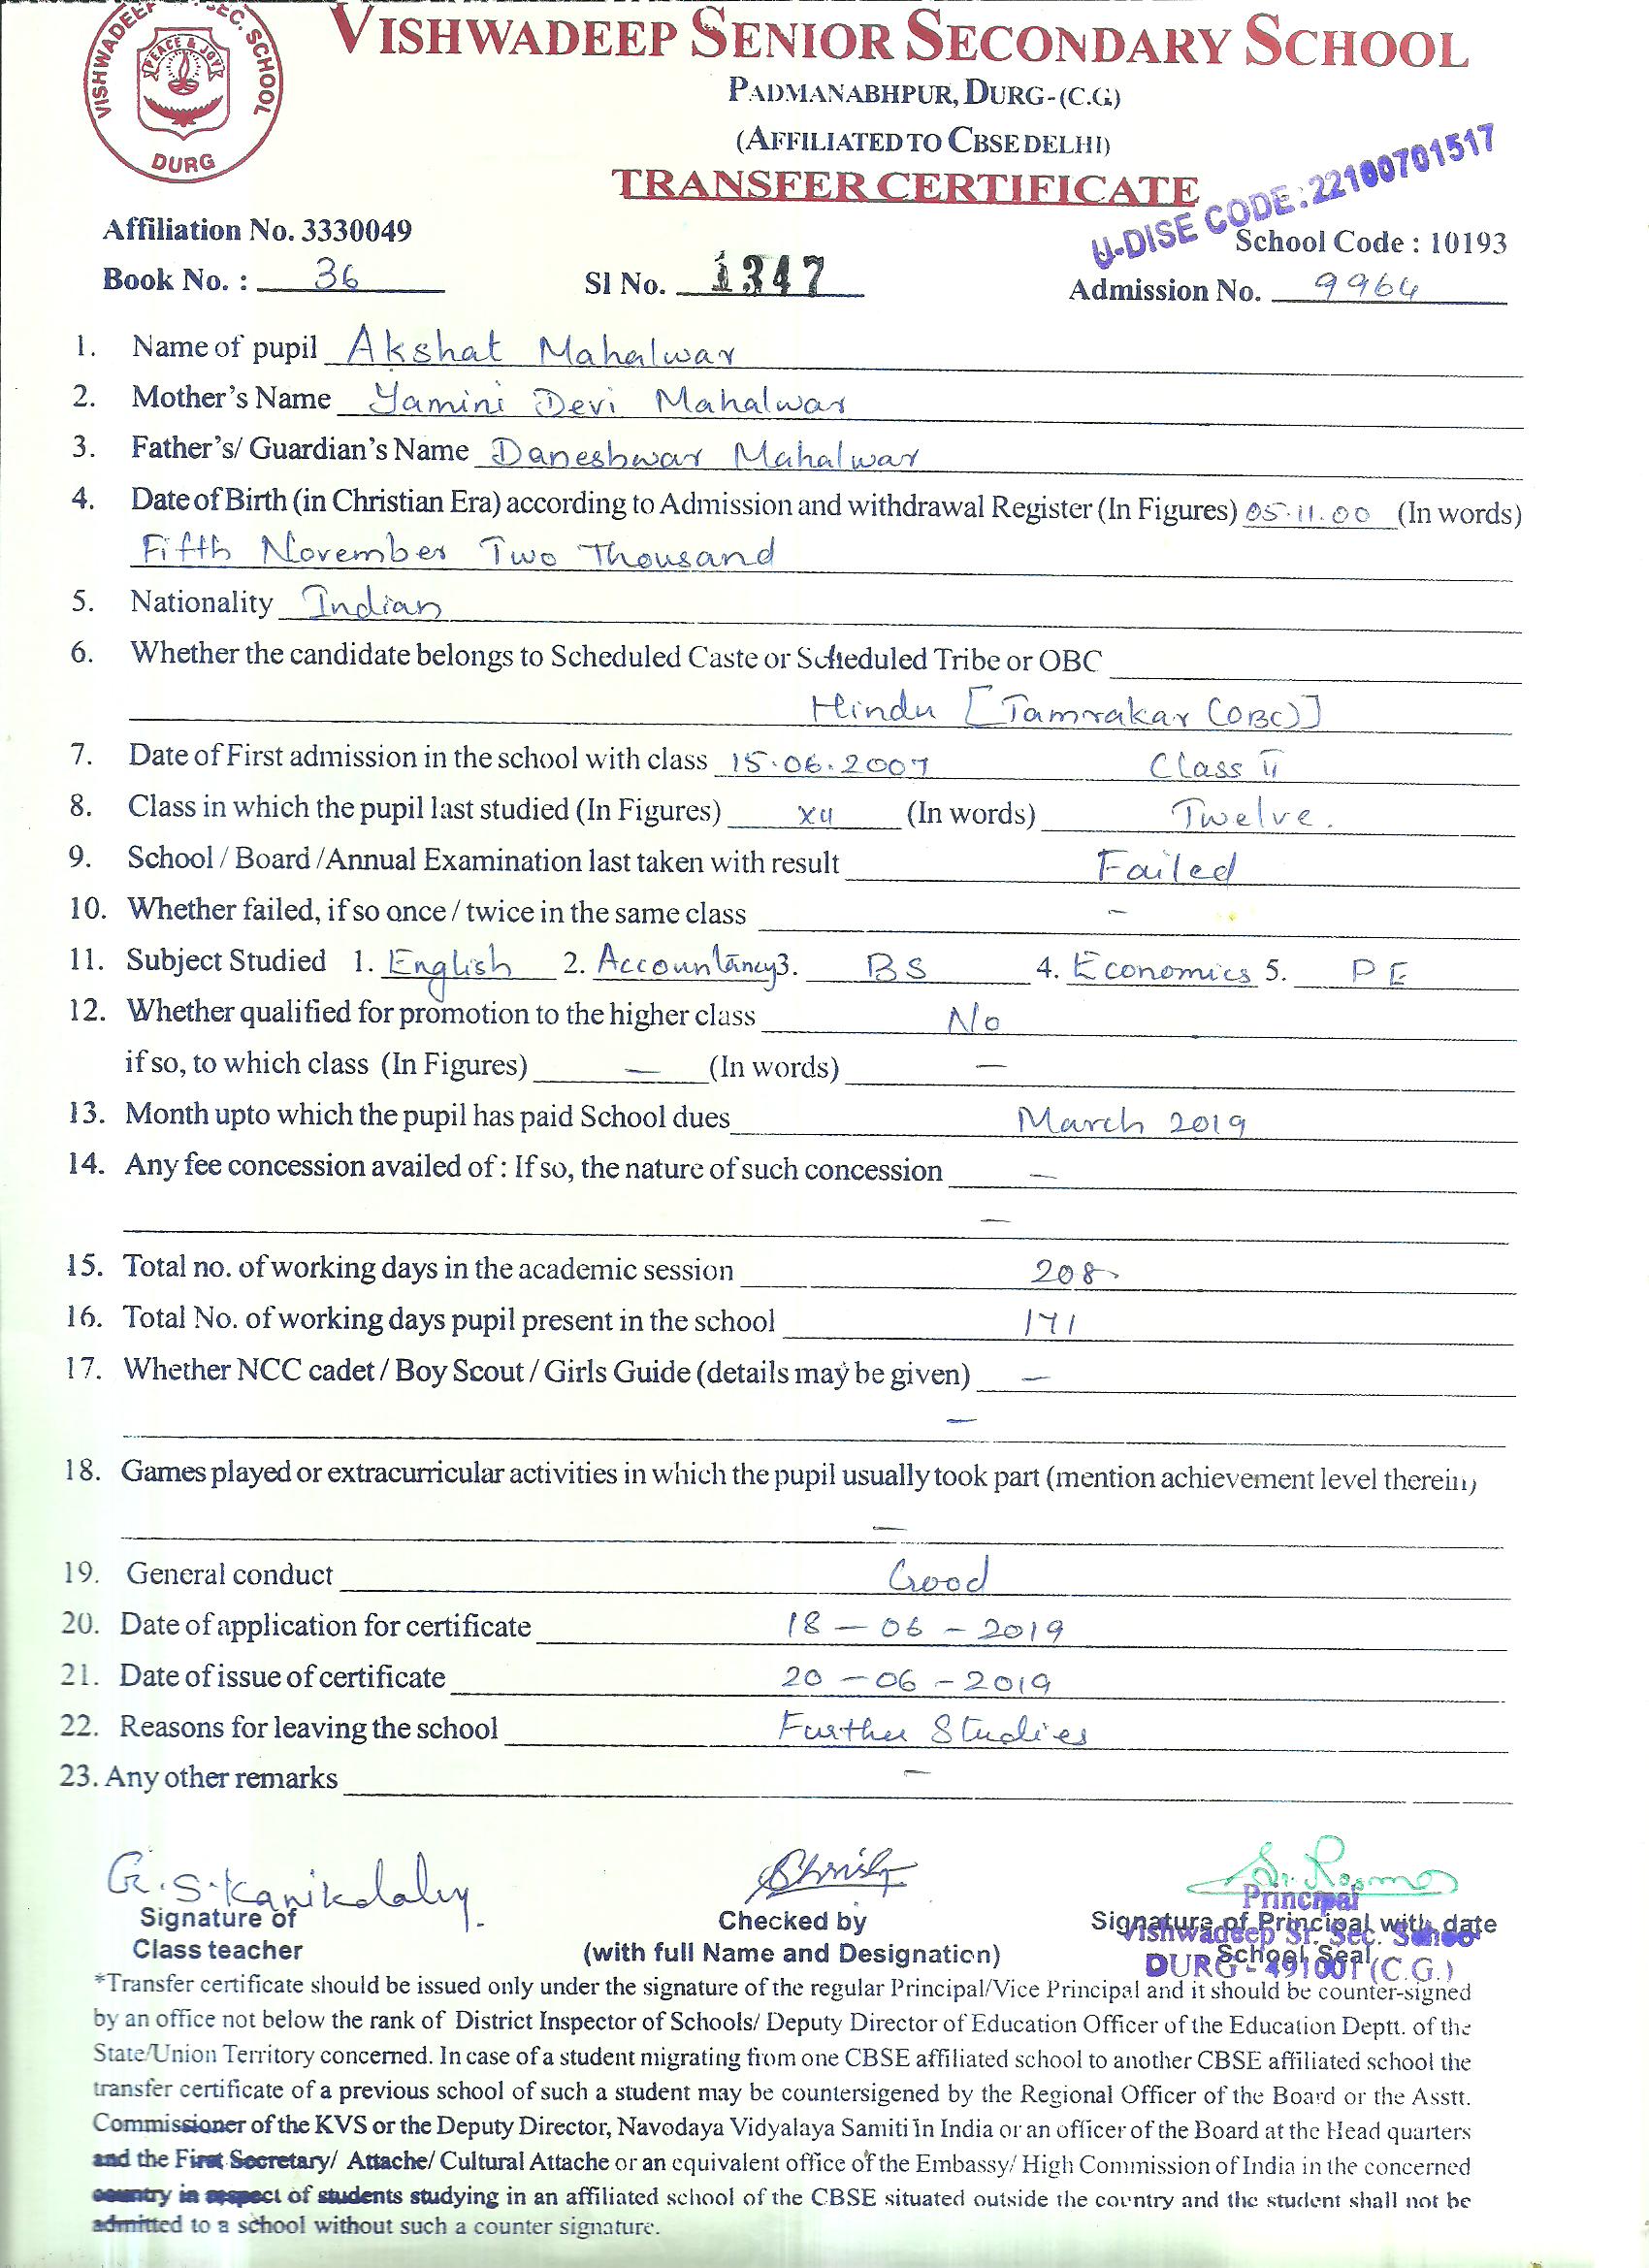 VISHWADEEP SR. SEC. SCHOOL
PEACE & JOY
DURG
VISHWADEEP SENIOR SECONDARY SCHOOL
PADMANABHPUR, DURG-(C.G.)
(AFFILIATED TO CBSE DELHI)
TRANSFER CERTIFICATE
U-DISE CODE: 22100701517
Affiliation No. 3330049 School Code : 10193
Book No. : 36 Sl No. 1347 Admission No. 9964
1. Name of pupil Akshat Mahalwar
2. Mother's Name Yamini Devi Mahalwar
3. Father's/ Guardian's Name Daneshwar Mahalwar
4. Date of Birth (in Christian Era) according to Admission and withdrawal Register (In Figures) 05.11.00 (In words)
Fifth November Two Thousand
5. Nationality Indian
6. Whether the candidate belongs to Scheduled Caste or Scheduled Tribe or OBC
Hindu [Tamrakar (OBC)]
7. Date of First admission in the school with class 15.06.2007 Class II
8. Class in which the pupil last studied (In Figures) XII (In words) Twelve.
9. School / Board /Annual Examination last taken with result Failed
10. Whether failed, if so once / twice in the same class –
11. Subject Studied 1. English 2. Accountancy 3. BS 4. Economics 5. PE
12. Whether qualified for promotion to the higher class No
if so, to which class (In Figures) — (In words) —
13. Month upto which the pupil has paid School dues March 2019
14. Any fee concession availed of : If so, the nature of such concession —
—
15. Total no. of working days in the academic session 208
16. Total No. of working days pupil present in the school 171
17. Whether NCC cadet / Boy Scout / Girls Guide (details may be given) —
—
18. Games played or extracurricular activities in which the pupil usually took part (mention achievement level therein)
—
19. General conduct Good
20. Date of application for certificate 18 – 06 – 2019
21. Date of issue of certificate 20 – 06 – 2019
22. Reasons for leaving the school Further Studies
23. Any other remarks —
Principal
Signature of Checked by Signature of Principal with date
Vishwadeep Sr. Sec. School
Class teacher (with full Name and Designation) School Seal
DURG - 491001 (C.G.)
*Transfer certificate should be issued only under the signature of the regular Principal/Vice Principal and it should be counter-signed
by an office not below the rank of District Inspector of Schools/ Deputy Director of Education Officer of the Education Deptt. of the
State/Union Territory concerned. In case of a student migrating from one CBSE affiliated school to another CBSE affiliated school the
transfer certificate of a previous school of such a student may be countersigened by the Regional Officer of the Board or the Asstt.
Commissioner of the KVS or the Deputy Director, Navodaya Vidyalaya Samiti in India or an officer of the Board at the Head quarters
and the First Secretary/ Attache/ Cultural Attache or an equivalent office of the Embassy/ High Commission of India in the concerned
country in respect of students studying in an affiliated school of the CBSE situated outside the country and the student shall not be
admitted to a school without such a counter signature.